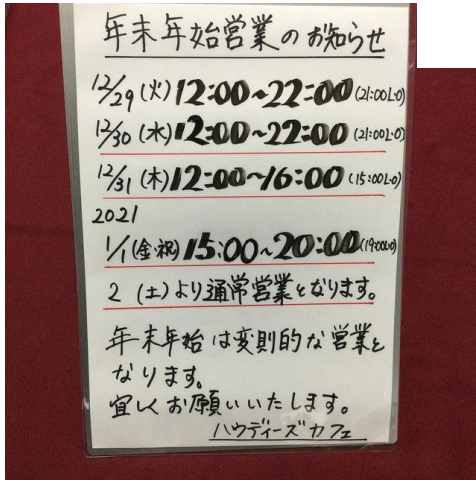 年末年始営業のお知らせ
12/29(火)12:00~22:00(21:00L.O)
12/30(水)12:00~22:00(21:00L.O)
12/31(木)12:00~16:00(15:00L.O)
2021
1/1(金・祝)15:00~20:00(19:00L.O)
2(土)より通常営業となります。
年末年始は変則的な営業と
なります。
宜しくお願いいたします。
ハウディーズカフェ